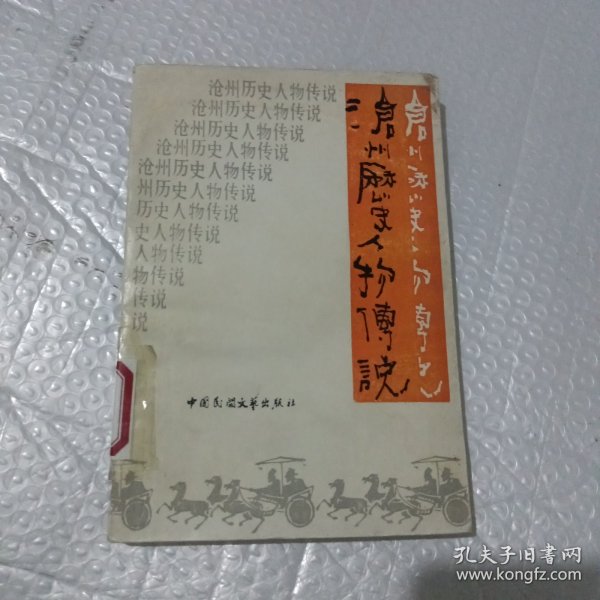 沧州历史人物传说
沧州历史人物传说
沧州历史人物传说
沧州历史人物传说
沧州历史人物传说
州历史人物传说
历史人物传说
史人物传说
人物传说
物传说
传说
说
滄州歷史人物傳說
中国民间文艺出版社
孔夫子旧书网
www.kongfz.com